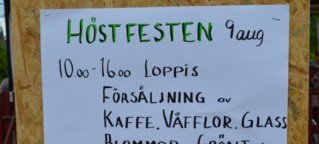 HÖSTFESTEN 9 aug
10.00-16.00 LOPPIS
FÖRSÄLJNING av
KAFFE, VÅFFLOR, GLASS
BLOMMOR, GRÖNT